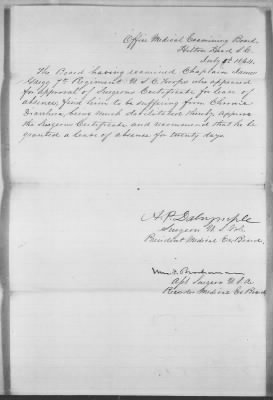 Office Medical Examining Board,
Hilton Head S.C.
July 1st 1864.
The Board having examined Chaplain James
Gregg 7th Regiment U S C Troops who appeared
for approval of Surgeons Certificate for leave of
absence, find him to be suffering from Chronic
Diarrhoea, being much debilitated thereby approve
the Surgeons Certificate and recommend that he be
granted a leave of absence for twenty days
A. P. Dalrymple
Surgeon U. S. Vol.
President Medical Ex. Board.
Surgeon U.S.A.
Recorder Medical Ex Board